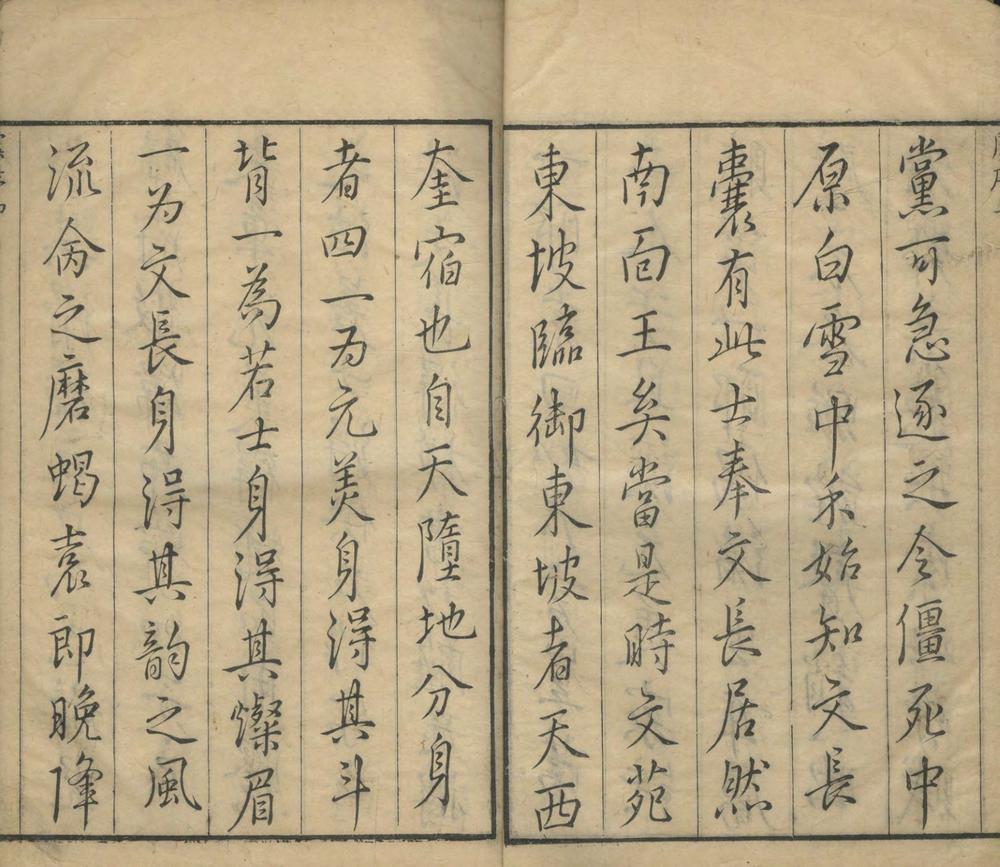 黨可急逐之令僵死中
原白雪中禾始知文長
囊有此士奉文長居然
南面王矣當是時文苑
東坡臨御東坡者天西
奎宿也自天墮地分身
者四一为元美身得其斗
背一為若士身得其燦眉
一为文長身得其韵之風
流命之磨蝎袁郎晚降